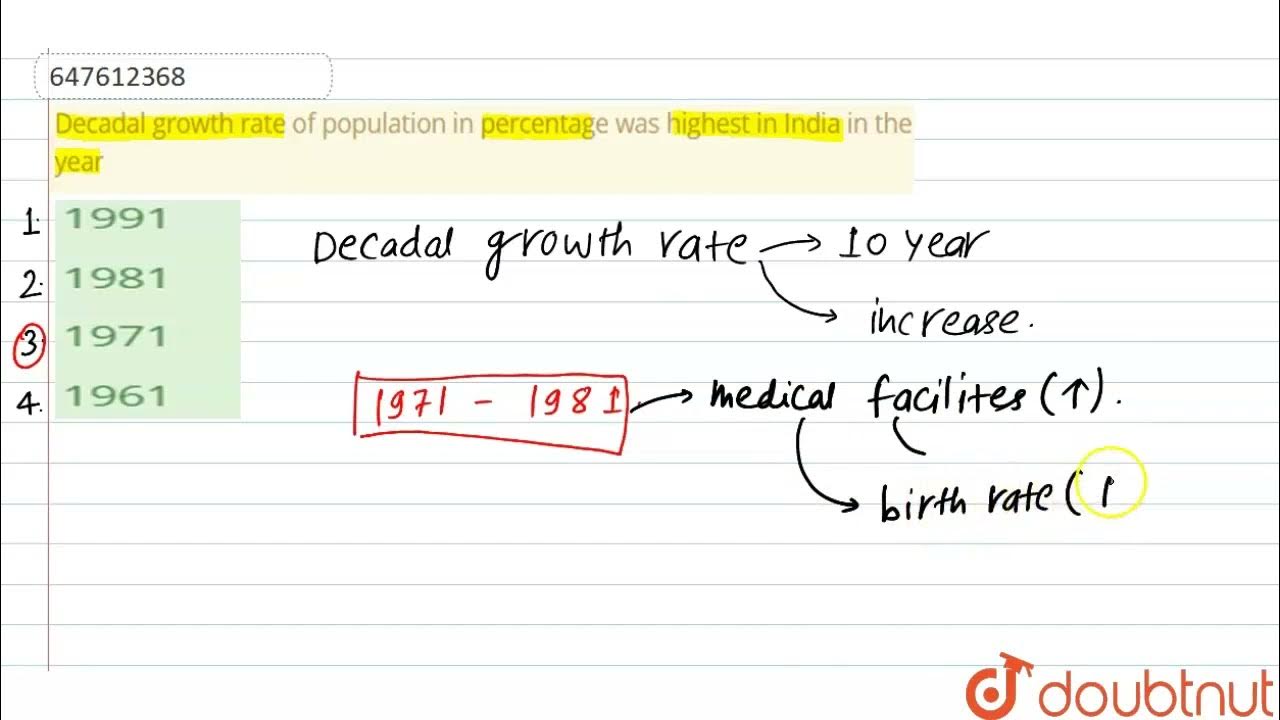 647612368
Decadal growth rate of population in percentage was highest in India in the
year
1. 1991
2. 1981
3. 1971
4. 1961
Decadal growth rate → 10 year
increase.
1971 - 1981 → medical facilites (↑).
birth rate (
doubtnut